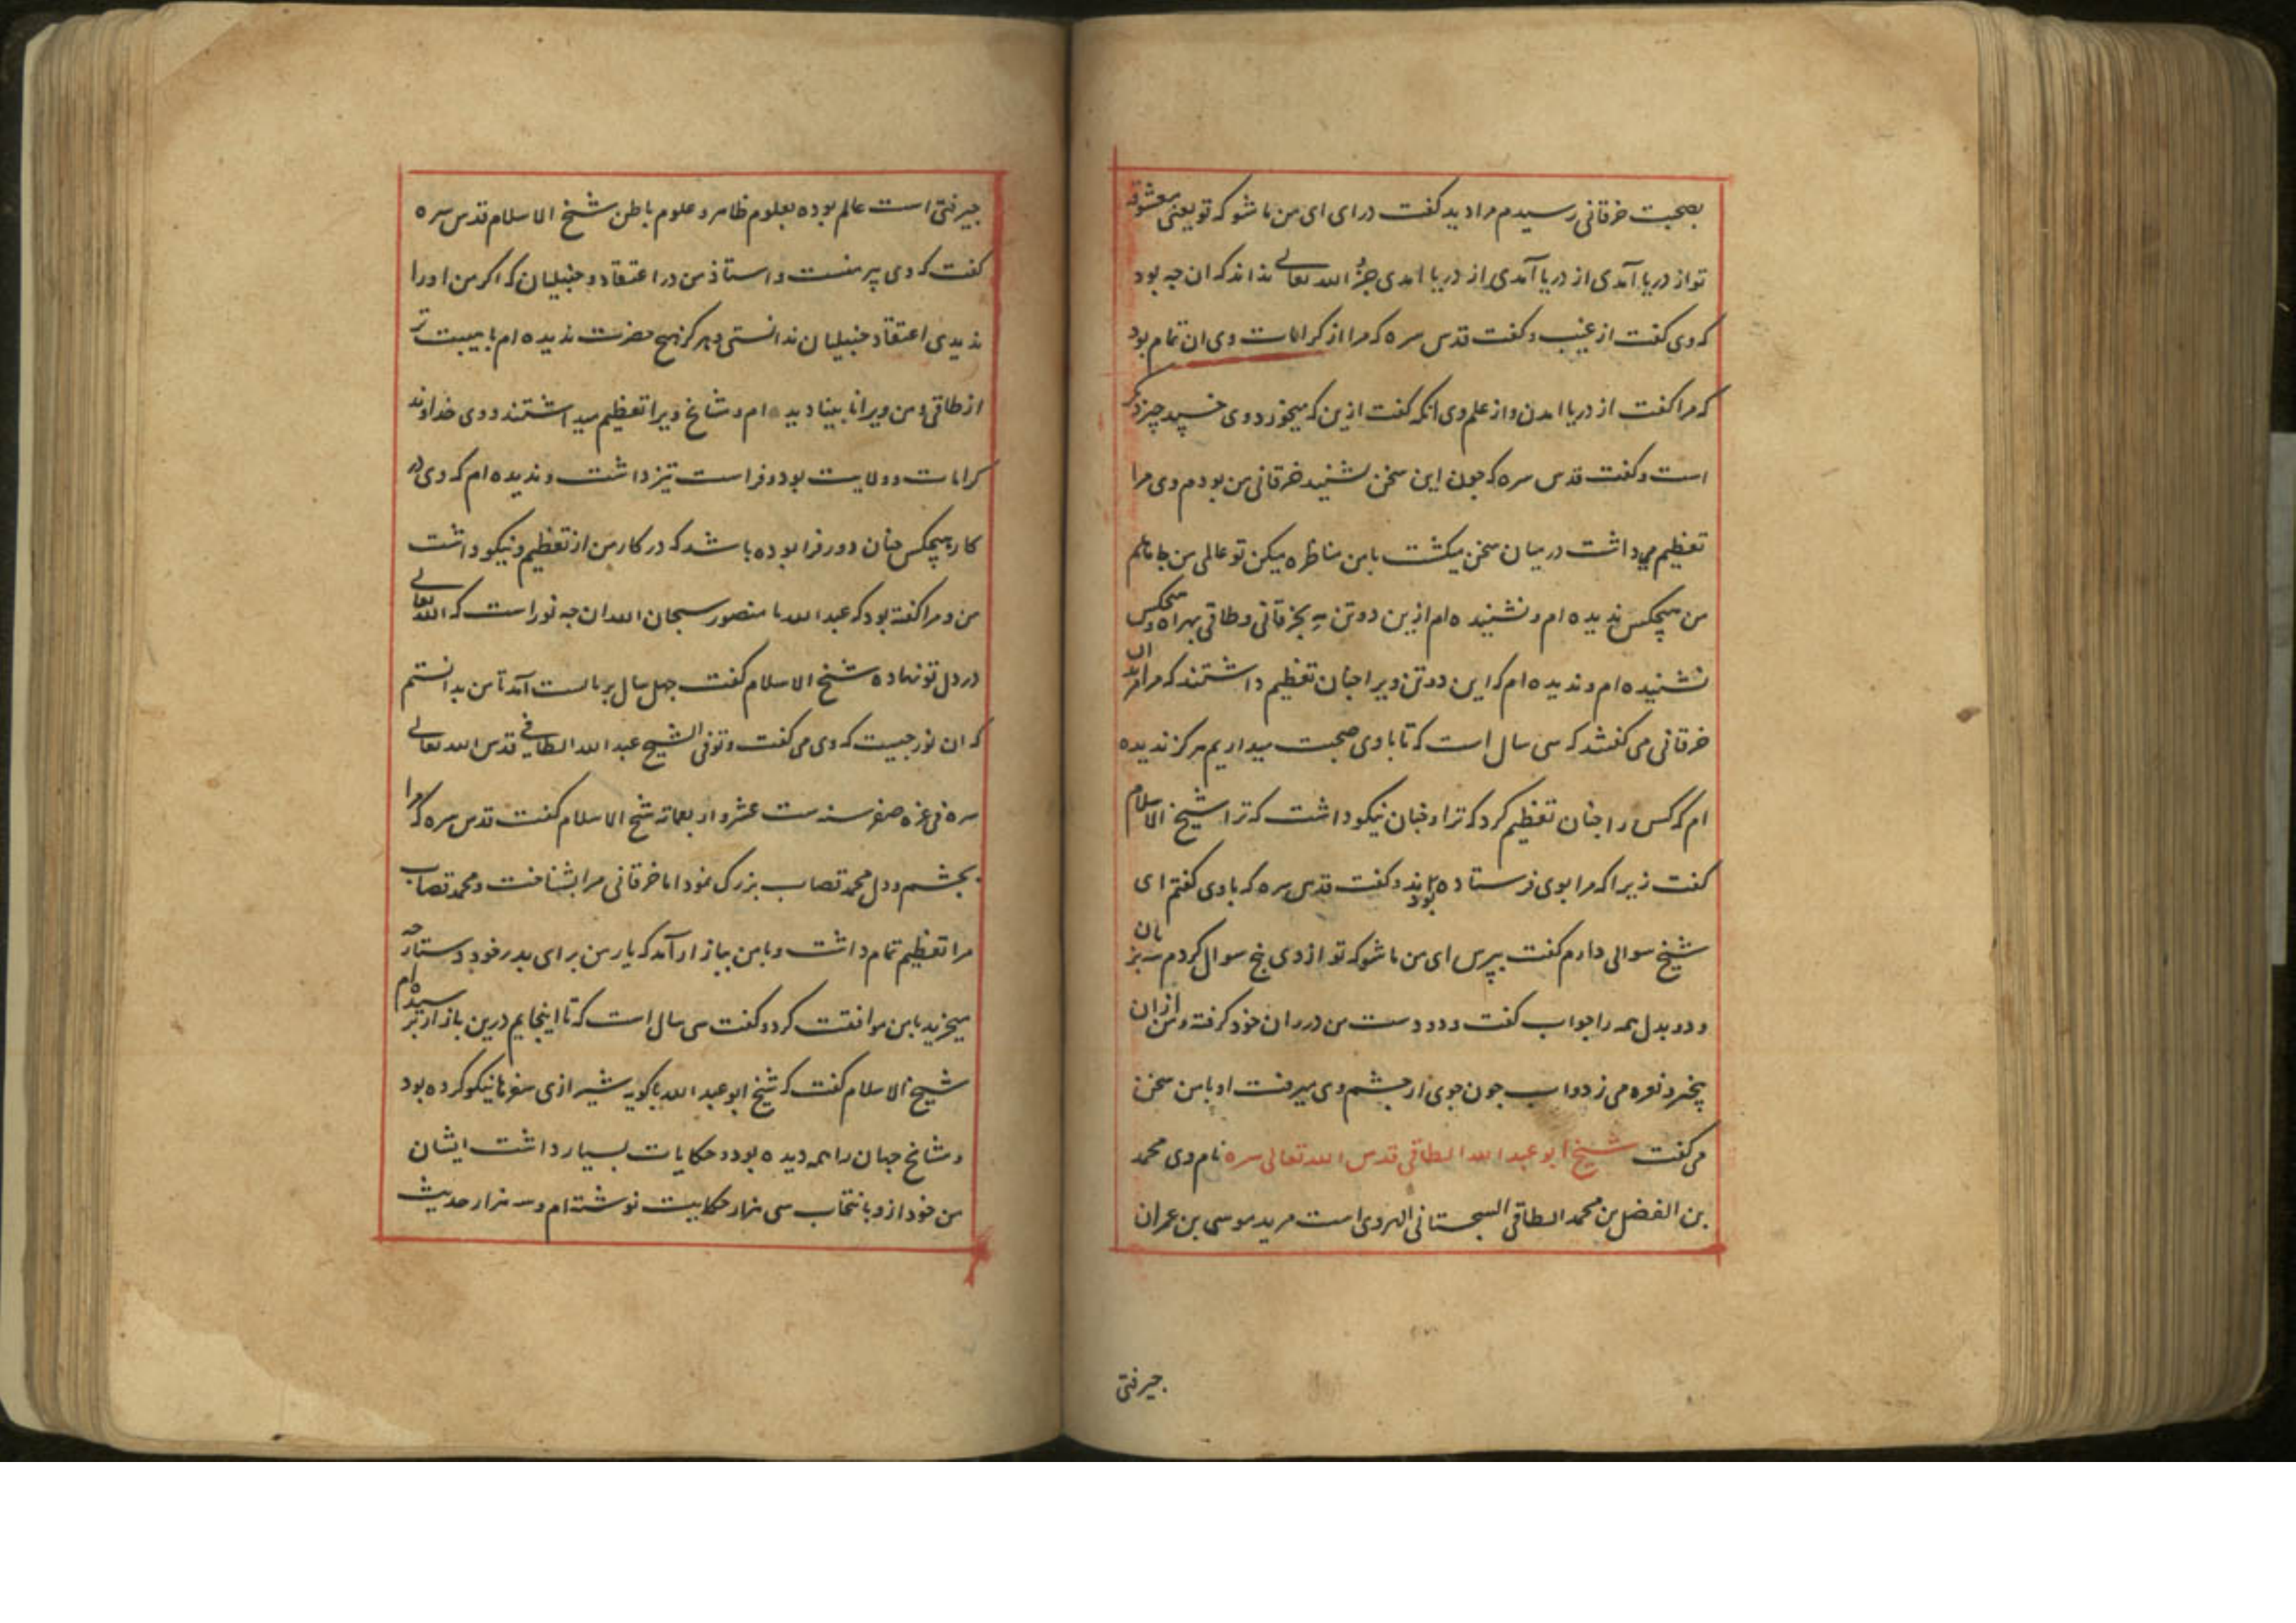 بصحبت خرقانی رسیدم مرا دید گفت درای ای من ماشو که تو یعنی معشوقه
تو از دریا آمدی از دریا آمدی از دریا امدی جزُ الله تعالے نداند که ان چه بود
که وی گفت از غیب و گفت قدس سره که مرا از کرامات وی ان تمام بود
که مرا گفت از دریا امدن و از علم وی انکه گفت ازین که میخورد و می خسپد چیز دکر
است و گفت قدس سره که چون این سخن بشنید خرقانی من بودم وی مرا
تعظیم می داشت در میان سخن میکشت با من مناظره میکن تو عالمی من جاهلم
من هیچکس ندیده ام و نشنیده ام ازین دو تن به بخرقانی و طاقی بهراه و هیچکس
نشنیده ام و ندیده ام که این دو تن ویرا چنان تعظیم داشتند که مرا مریدان
خرقانی می کفتند که سی سال است که تا با وی صحبت میداریم هرکز ندیده
ام که کس را چنان تعظیم کرد که ترا و چنان نیکو داشت که ترا شیخ الاسلام
گفت زیرا که مرا بوی فرستاده بودند و گفت قدس سره که با وی کفتم ای
شیخ سوالی دارم کفت بپرس ای من ماشو که تو از وی پنج سوال کردم سه بزبان
و دو بدل همه را جواب کفت و دو دست من در ران خود کرفته و من از ان
بیخبر و نعره می زد و اب چون جوی از چشم وی میرفت او با من سخن
می کفت شیخ ابو عبد الله الطاقی قدس الله تعالی سره نام وی محمد
بن الفضل بن محمد الطاقی السجستانی الهروی است مرید موسی بن عمران
جیرفتی
جیرفتی است عالم بوده بعلوم ظاهر و علوم باطن شیخ الاسلام قدس سره
کفت که وی پیر منست و استاذ من در اعتقاد و حنبلیان که اکر من او را
ندیدی اعتقاد حنبلیان ندانستی و هرکز هیچ حضرت ندیده ام با هیبت تر
از طاقی و من ویرا نابینا دیده ام و مشایخ ویرا تعظیم میداشتند و وی خداوند
کرامات و ولایت بود و فراست تیز داشت و ندیده ام که وی در
کار هیچکس چنان دور فرا بوده باشد که در کار من از تعظیم و نیکو داشت
من و مرا کفته بود که عبد الله با منصور سبحان الله ان چه نور است که الله تعالے
در دل تو نهاده شیخ الاسلام کفت چهل سال بر بالست آمد تا من بدانستم
که ان نور چیست که وی می کفت و توفی الشیخ عبد الله الطاقی قدس الله تعالے
سره فی غره صفر سنه ست عشر و اربعمائه شیخ الاسلام کفت قدس سره که مرا
بچشم و دل محمد قصاب بزرک نمود اما خرقانی مرا بشناخت و محمد قصاب
مرا تعظیم تمام داشت و با من ببازار آمد که یار من برای پدر خود دستارچه
میخرید با من موافقت کرد و کفت سی سال است که تا اینجایم درین بازار نرسیده ام
شیخ الاسلام کفت که شیخ ابو عبد الله باکویه شیرازی سفرها نیکو کرده بود
و مشایخ جهان را همه دیده بود و حکایات بسیار داشت ایشان
من خود از و بانتخاب سی هزار حکایت نوشته ام و سه هزار حدیث